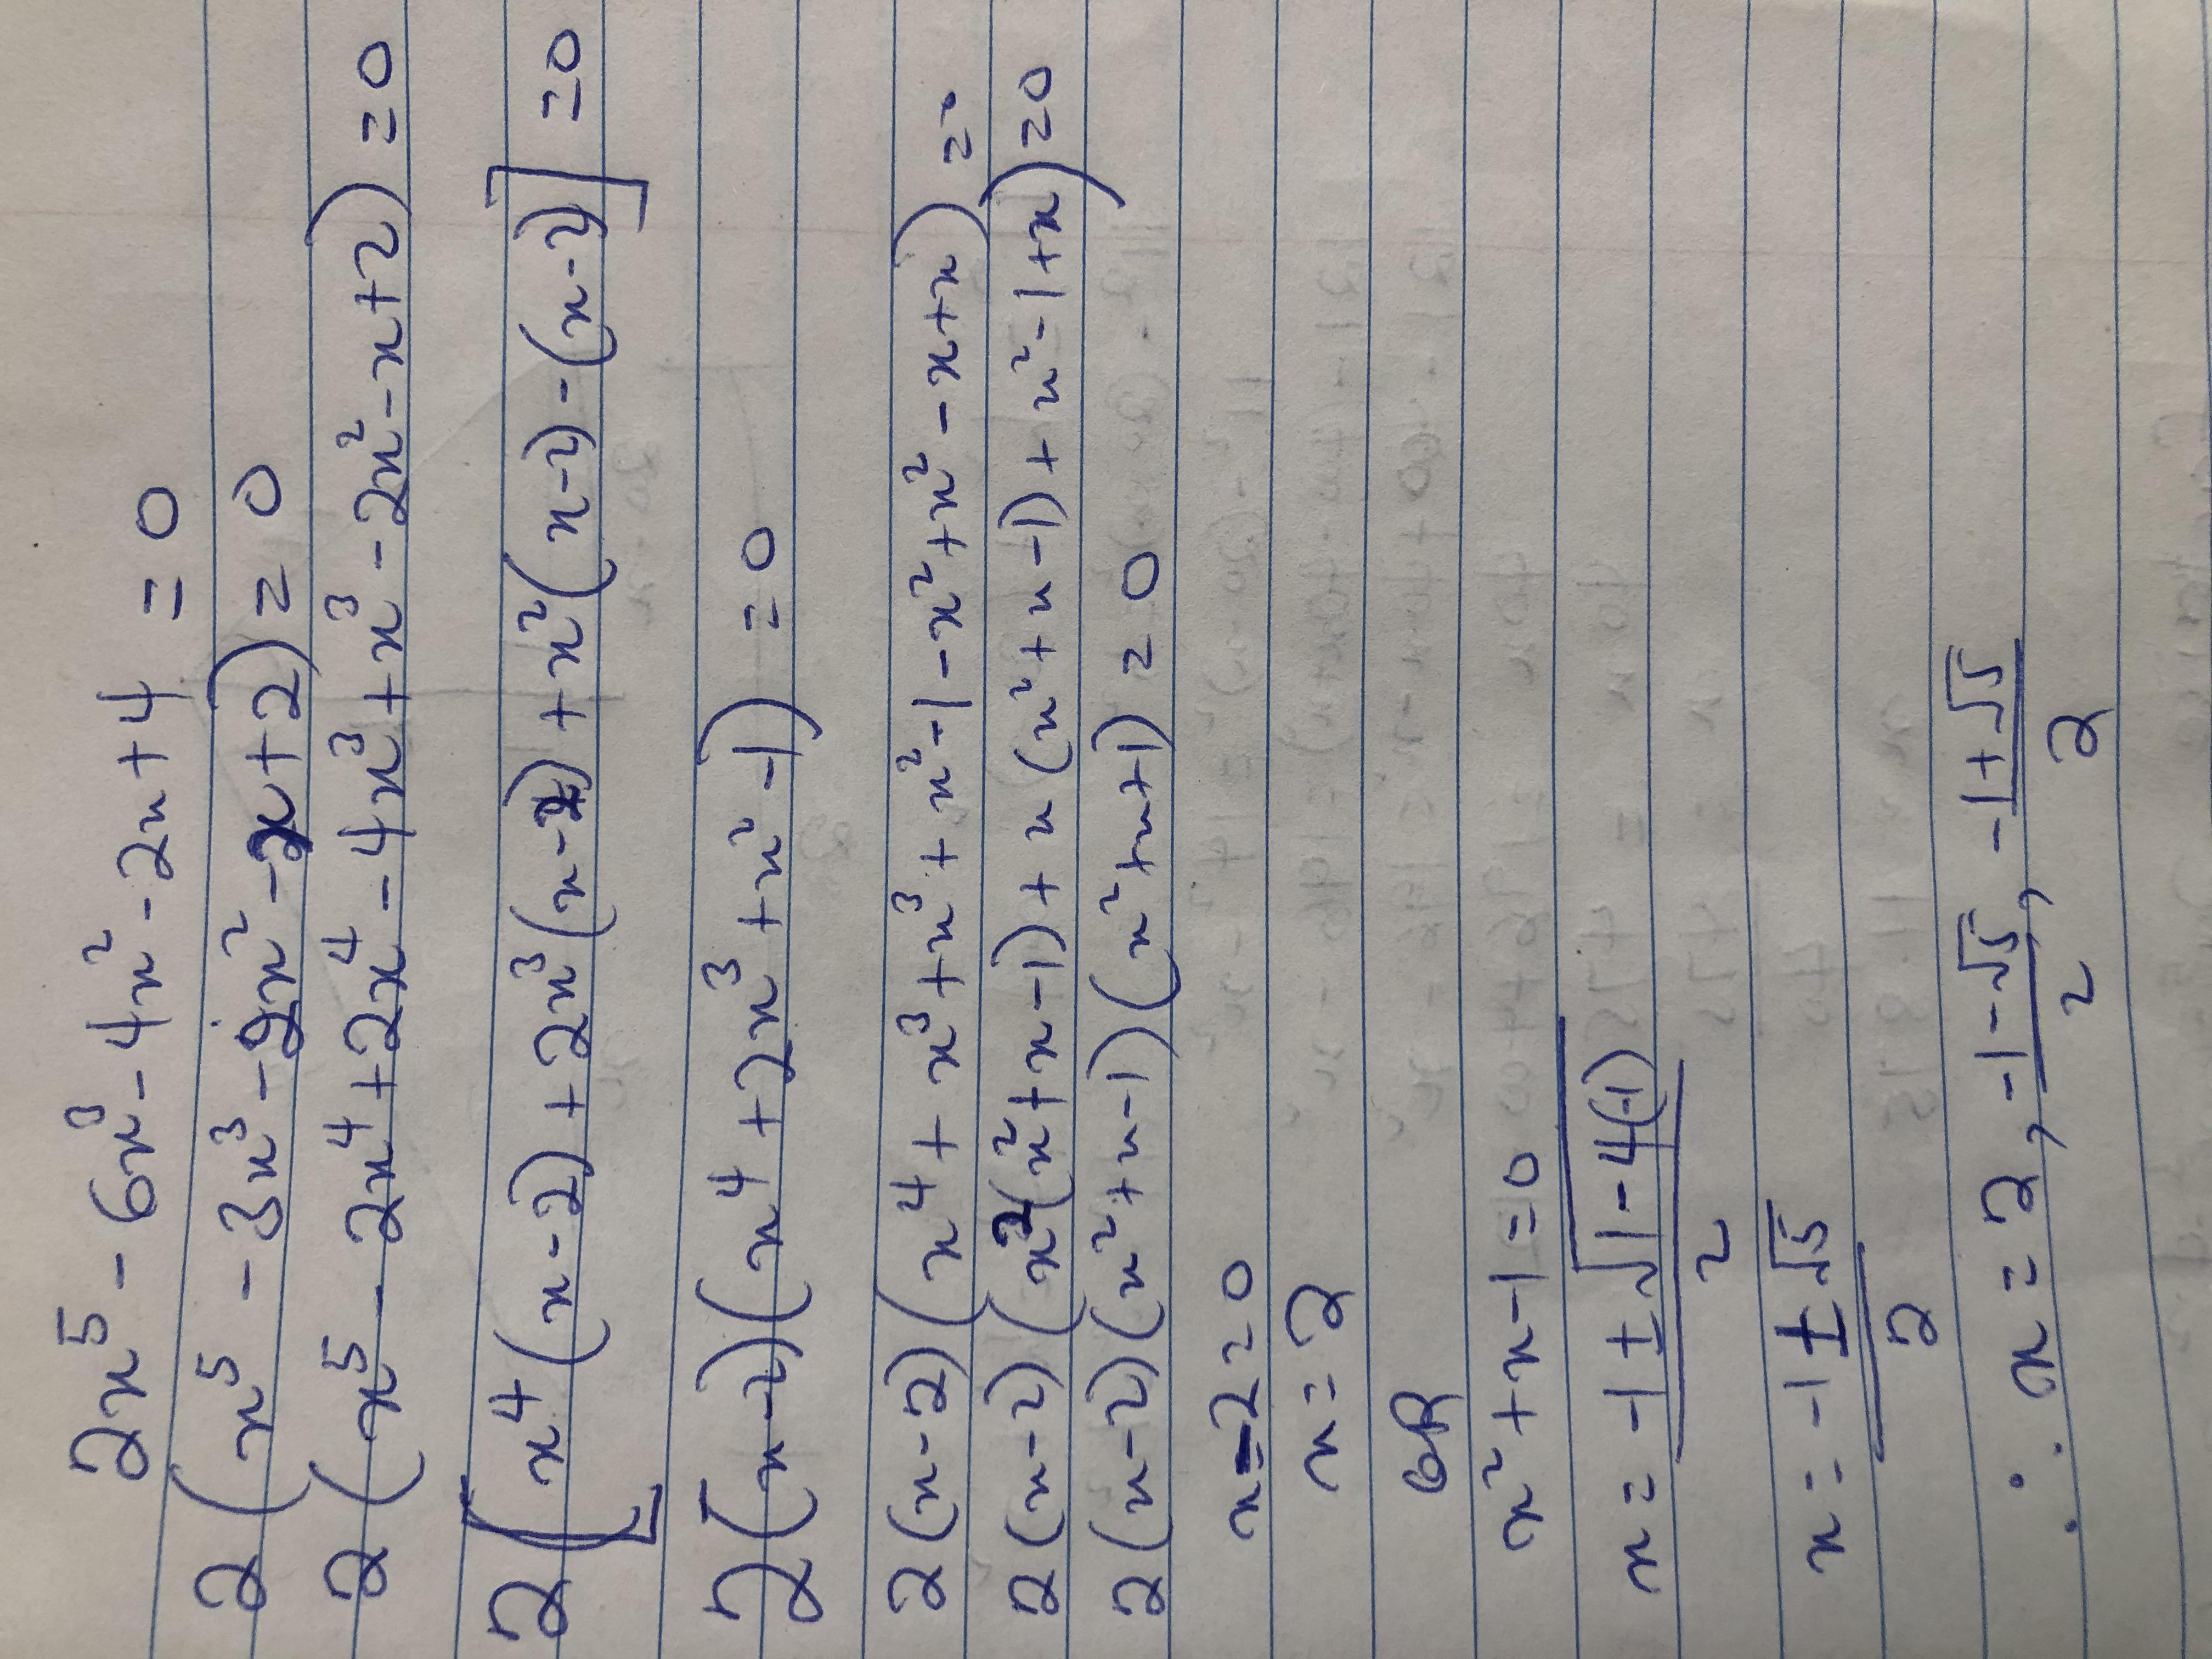 2x⁵ - 6x³ - 4x² - 2x + 4 = 0
2(x⁵ - 3x³ - 2x² - x + 2) = 0
2(x⁵ - 2x⁴ + 2x⁴ - 4x³ + x³ - 2x² - x + 2) = 0
2[x⁴(x-2) + 2x³(x-2) + x²(x-2) - (x-2)] = 0
2(x-2)(x⁴ + 2x³ + x² - 1) = 0
2(x-2)(x⁴ + x³ + x³ + x² - 1 - x² + x² - x + x) = 0
2(x-2)(x²(x² + x - 1) + x(x² + x - 1) + x² - 1 + x) = 0
2(x-2)(x² + x - 1)(x² + x + 1) = 0
x - 2 = 0
x = 2
OR
x² + x - 1 = 0
x = -1 ± √1 - 4(-1)
2
x = -1 ± √5
2
∴ x = 2, -1 - √5 / 2, -1 + √5 / 2